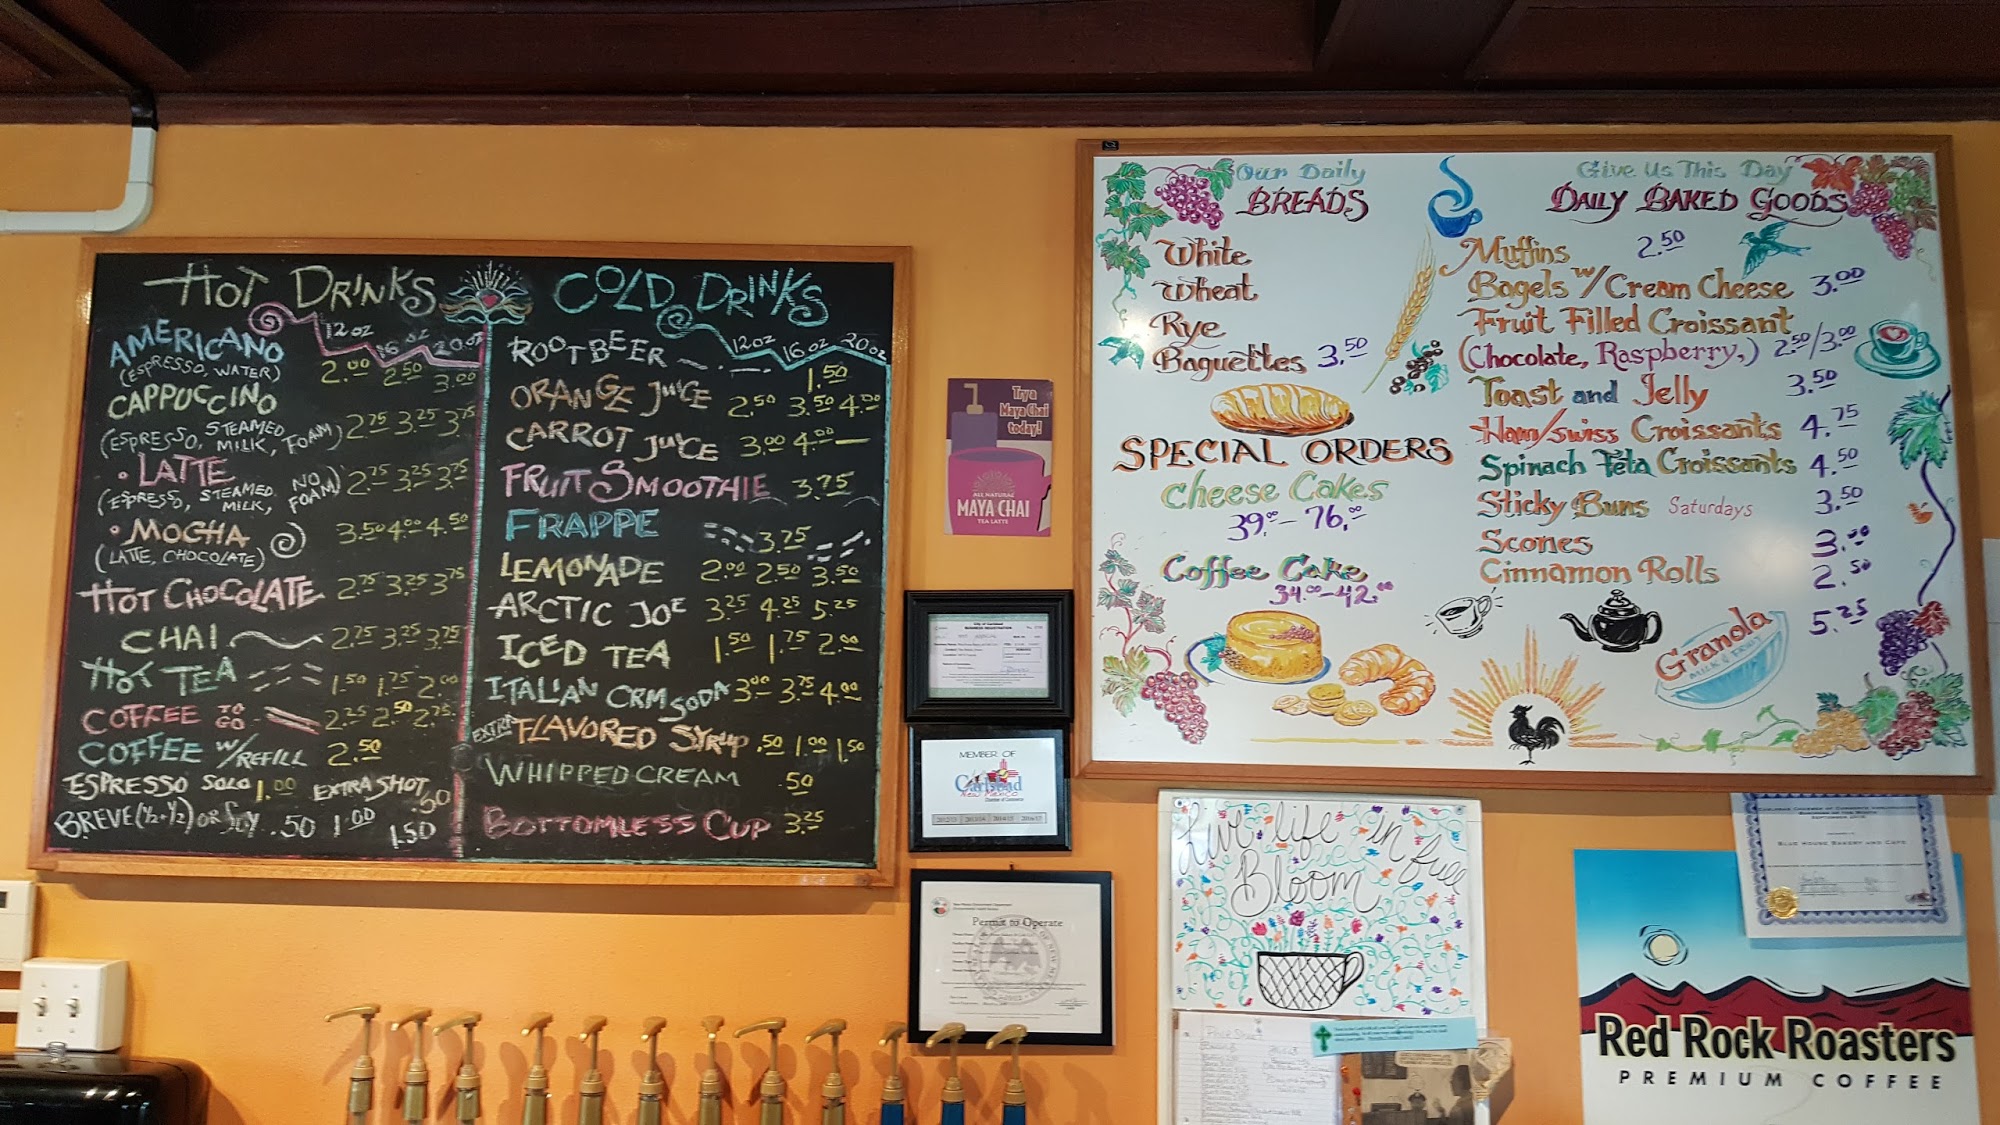 HOT DRINKS
12 oz 16 oz 20 oz
AMERICANO
(ESPRESSO, WATER) 2.00 2.50 3.00
CAPPUCCINO
(ESPRESSO, STEAMED MILK, FOAM) 2.75 3.25 3.75
• LATTE
(ESPRESSO, STEAMED MILK, NO FOAM) 2.75 3.25 3.75
• MOCHA 3.50 4.00 4.50
(LATTE, CHOCOLATE)
HOT CHOCOLATE 2.75 3.25 3.75
CHAI 2.75 3.25 3.75
HOT TEA 1.50 1.75 2.00
COFFEE TO GO 2.25 2.50 2.75
COFFEE W/REFILL 2.50
ESPRESSO SOLO 1.00 EXTRA SHOT .50
BREVE (½+½) OR SOY .50 1.00 1.50
COLD DRINKS
12 oz 16 oz 20 oz
ROOT BEER 1.50
ORANGE JUICE 2.50 3.50 4.00
CARROT JUICE 3.00 4.00 —
FRUIT SMOOTHIE 3.75
FRAPPE 3.75
LEMONADE 2.00 2.50 3.50
ARCTIC JOE 3.25 4.25 5.25
ICED TEA 1.50 1.75 2.00
ITALIAN CRM SODA 3.00 3.75 4.00
EXTRA FLAVORED SYRUP .50 1.00 1.50
WHIPPED CREAM .50
BOTTOMLESS CUP 3.25
Try a
Maya Chai
today!
ALL NATURAL
MAYA CHAI
TEA LATTE
City of Carlsbad
BUSINESS REGISTRATION
MEMBER OF
Carlsbad
New Mexico
Chamber of Commerce
Permit to Operate
Our Daily
BREADS
White
Wheat
Rye
Baguettes 3.50
SPECIAL ORDERS
Cheese Cakes
39.00 – 76.00
Coffee Cake
34.00 – 42.00
Give Us This Day
DAILY BAKED GOODS
Muffins 2.50
Bagels w/ Cream Cheese 3.00
Fruit Filled Croissant
(Chocolate, Raspberry,) 2.50/3.00
Toast and Jelly 3.50
Ham/Swiss Croissants 4.75
Spinach Feta Croissants 4.50
Sticky Buns Saturdays 3.50
Scones 3.00
Cinnamon Rolls 2.50
Granola 5.25
MILK & FRUIT
Live life in full
Bloom
BLUE HOUSE BAKERY AND CAFE
Red Rock Roasters
PREMIUM COFFEE